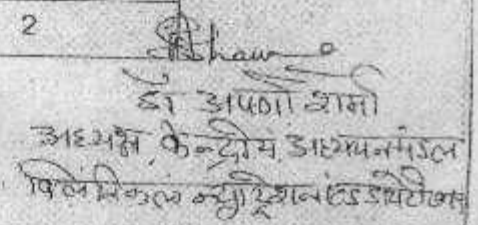 2
डॉ अपर्णा शर्मा
अध्यक्ष केन्द्रीय अध्ययनमंडल
क्लिनिकल न्यूट्रीशन एंड डायटेटिक्स